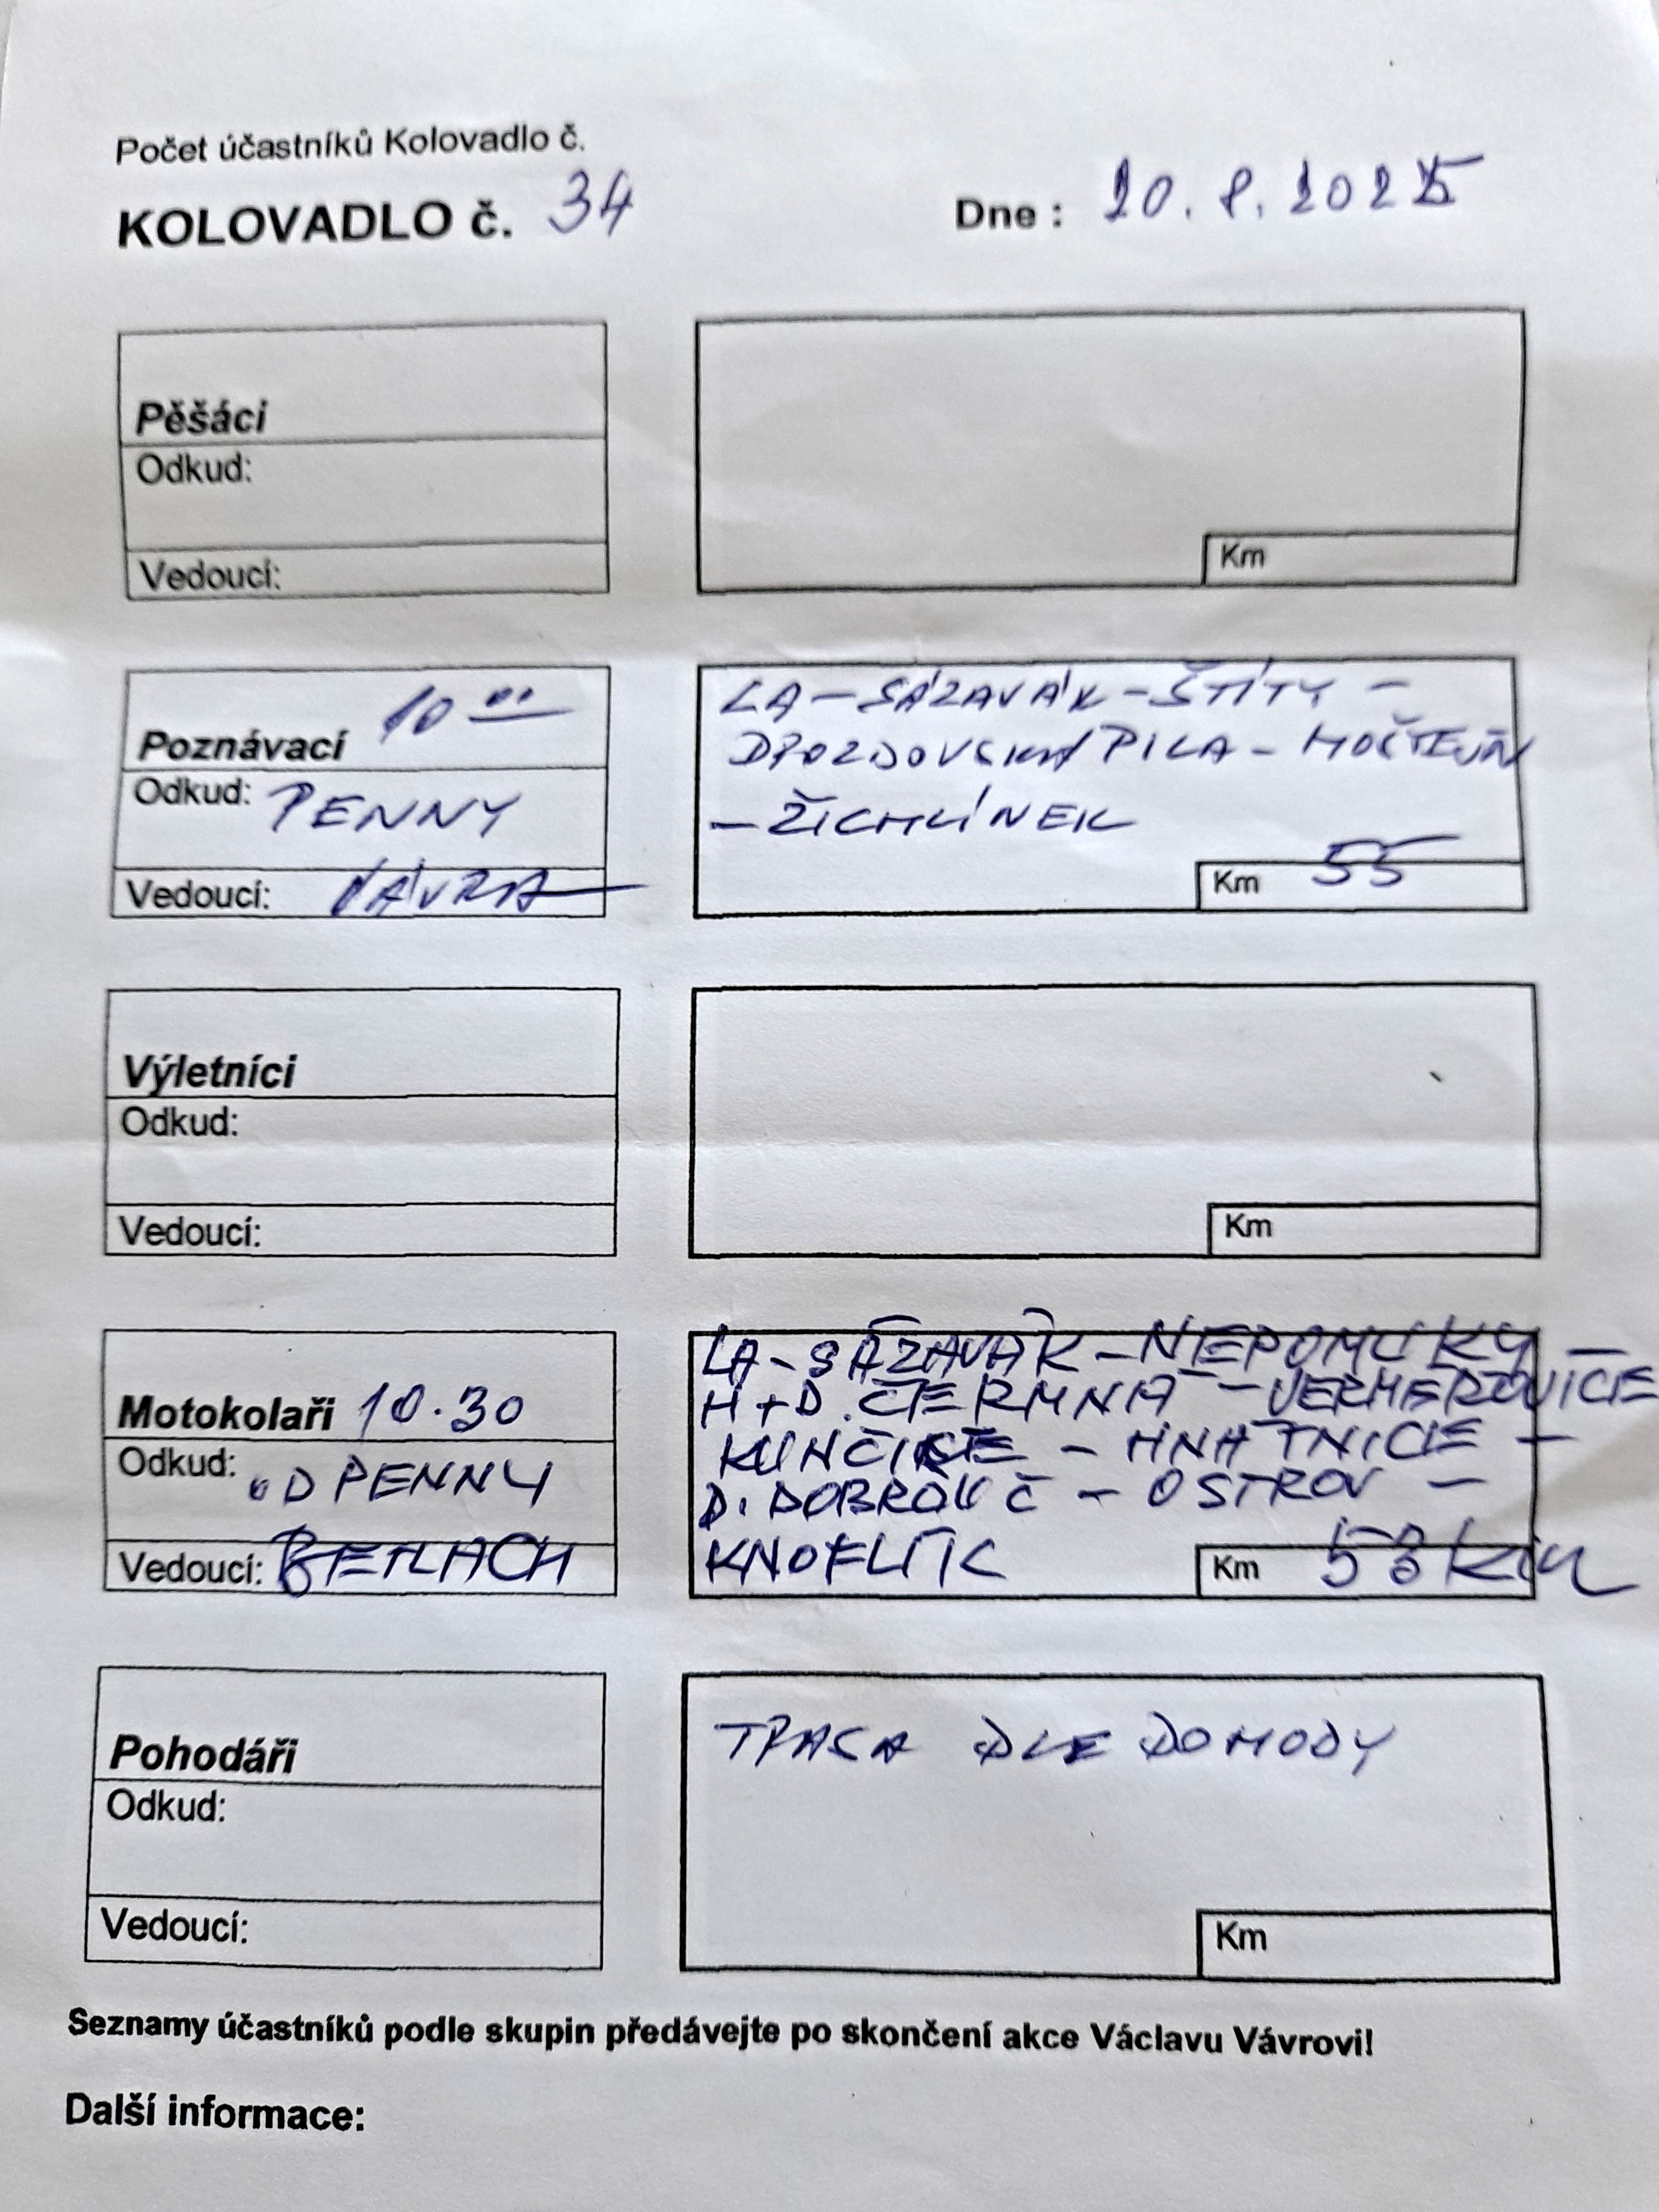 Počet účastníků Kolovadlo č.
KOLOVADLO č. 34 Dne : 20. 8. 2025
Pěšáci
Odkud:
Vedoucí:
Km
Poznávací 10 00
Odkud: PENNY
Vedoucí: VÁVRA
LA - SÁZAVÁK - ŠTÍTY -
DROZDOVSKÁ PILA - HOČTEJN
- ŽICHLÍNEK
Km 55
Výletníci
Odkud:
Vedoucí:
Km
Motokolaři 10.30
Odkud: OD PENNY
Vedoucí: BETLACH
LA - SÁZAVÁK - NEPOMUKY -
H + D. ČERMNÁ - VERMEŘOVICE
KUNČICE - HNÁTNICE -
D. DOBROUČ - OSTROV -
KNOFLÍK
Km 53 km
Pohodáři
Odkud:
Vedoucí:
TRASA DLE DOHODY
Km
Seznamy účastníků podle skupin předávejte po skončení akce Václavu Vávrovi!
Další informace: